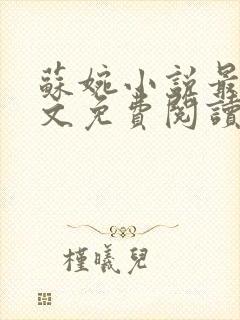 蘇婉小說最
文免費閱讀
槿曦兒